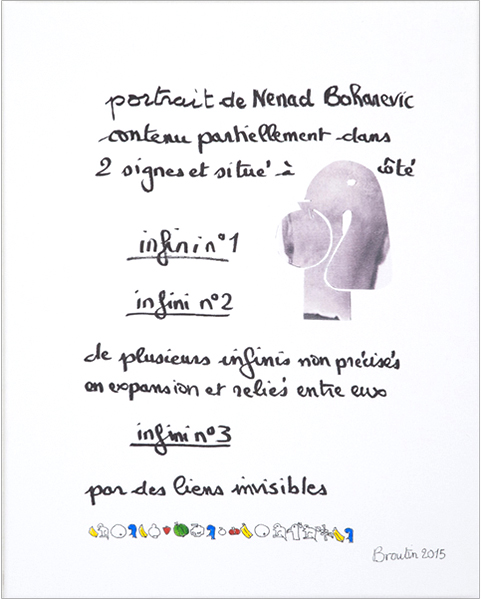 portrait de Nenad Bohanevic
contenu partiellement dans
2 signes et situé à côté
infini n° 1
infini n° 2
de plusieurs infinis non précisés
en expansion et reliés entre eux
infini n° 3
par des liens invisibles
Broutin 2015